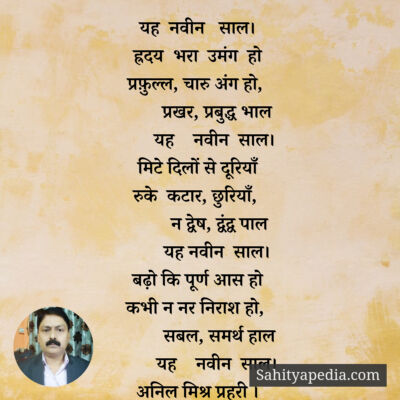 यह नवीन साल।
ह्रदय भरा उमंग हो
प्रफ़ुल्ल, चारु अंग हो,
प्रखर, प्रबुद्ध भाल
यह नवीन साल।
मिटे दिलों से दूरियाँ
रुके कटार, छुरियाँ,
न द्वेष, द्वंद्व पाल
यह नवीन साल।
बढ़ो कि पूर्ण आस हो
कभी न नर निराश हो,
सबल, समर्थ हाल
यह नवीन साल।
Sahityapedia.com
अनिल मिश्र प्रहरी ।